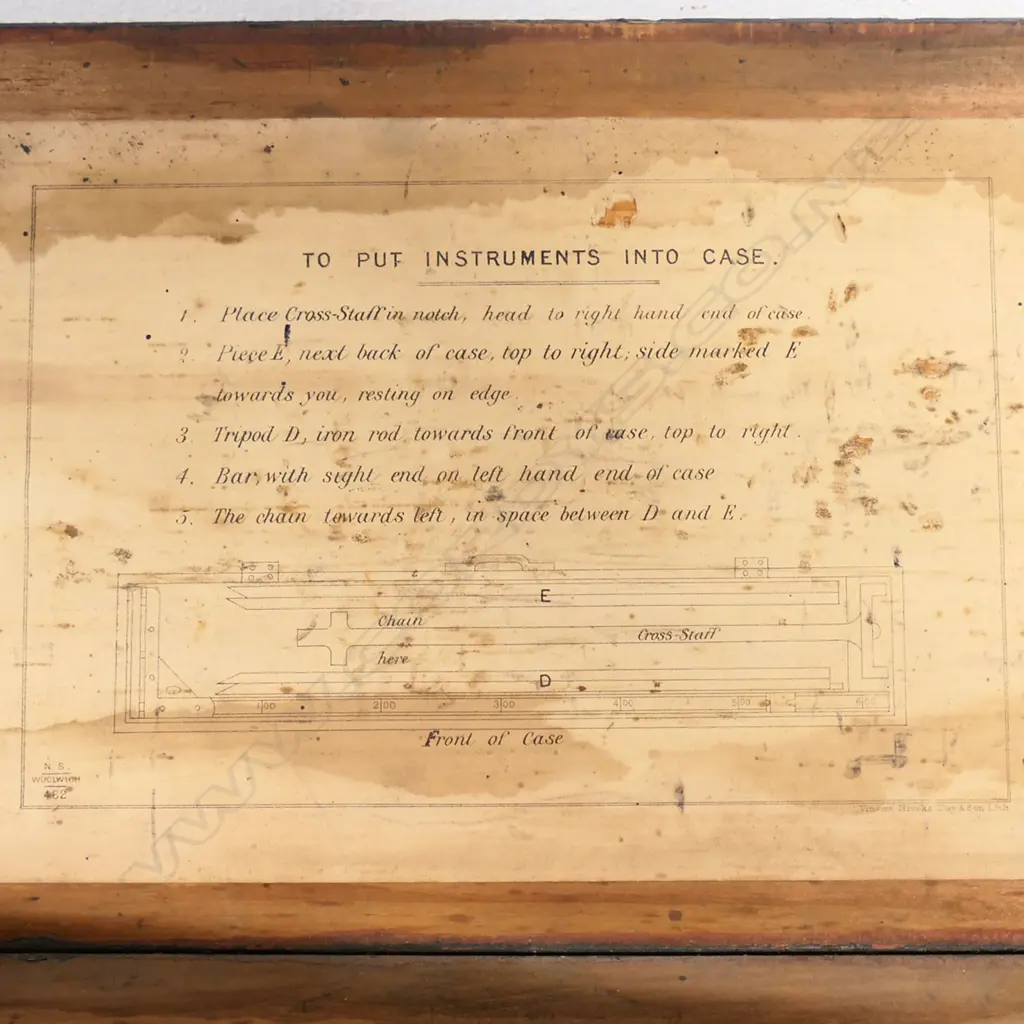 TO PUT INSTRUMENTS INTO CASE.
1. Place Cross-Staff in notch, head to right hand end of case.
2. Piece E, next back of case, top to right; side marked E
towards you, resting on edge.
3. Tripod D, iron rod towards front of case, top to right.
4. Bar, with sight end on left hand end of case
5. The chain towards left, in space between D and E.
E
Chain
Cross-Staff
here
D
100 200 300 400 500 600
Front of Case
N. S.
WOOLWICH
462
Vincent Brooks Day & Son Lith.